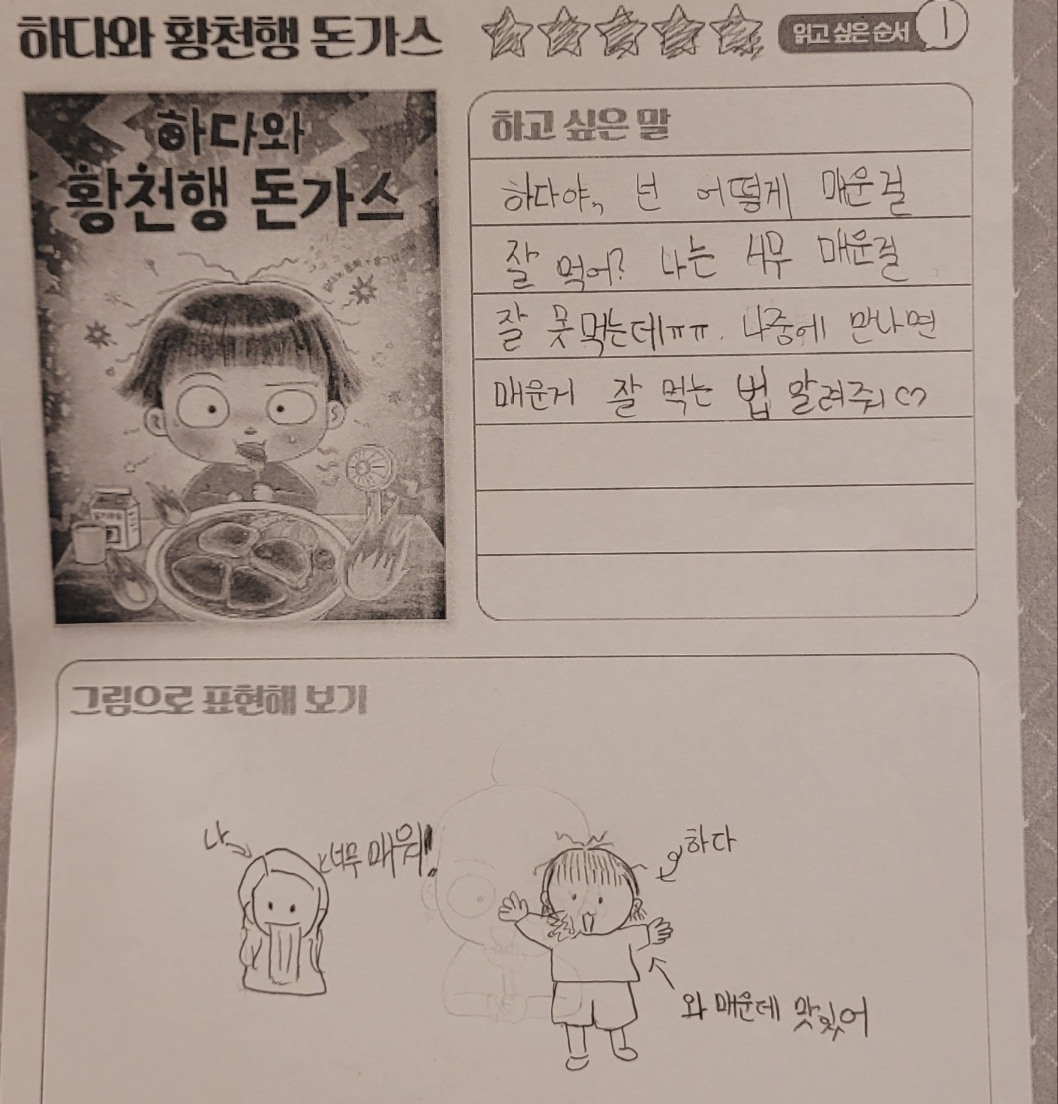 하다와 황천행 돈가스
읽고 싶은 순서 1
하다와
황천행 돈가스
하고 싶은 말
하다야, 넌 어떻게 매운걸
잘 먹어? 나는 너무 매운걸
잘 못먹는데ㅠㅠ. 나중에 만나면
매운거 잘 먹는 법 알려줘♡
그림으로 표현해 보기
나
너무 매워!
하다
와 매운데 맛있어